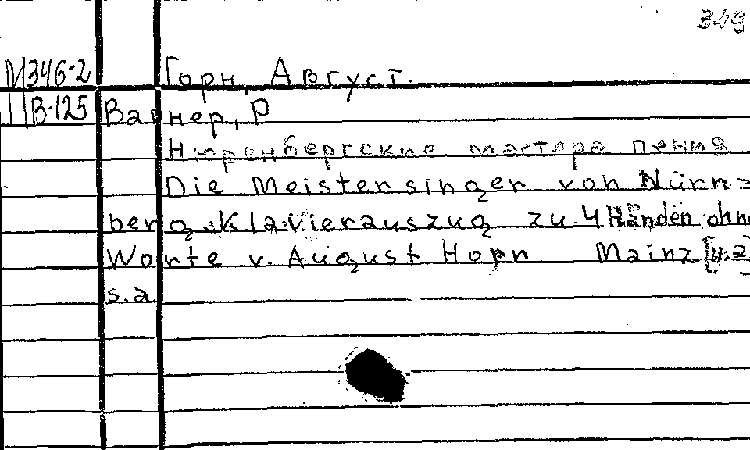 349
М346-2 Горн, Август.
В-125 Вагнер, Р
Нюренбергские мастера пения
Die Meistersinger von Nürn=
berg. Klavierauszug zu 4 Händen ohne
Worte v. August Horn Mainz
s.a.